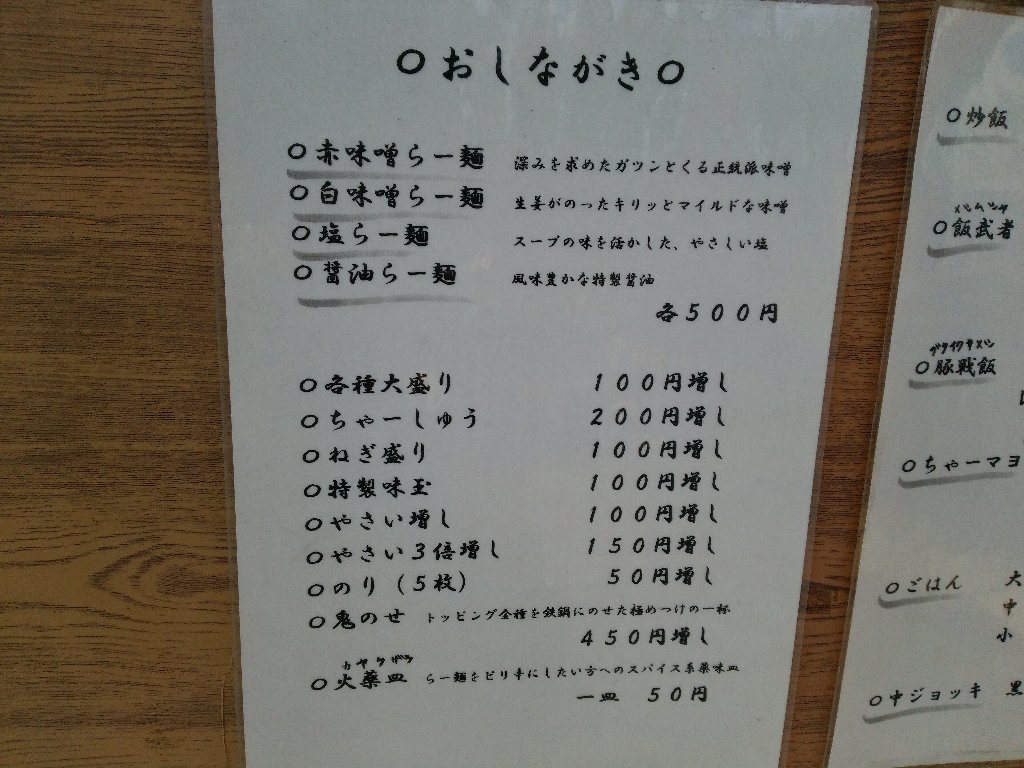 〇おしながき〇
〇赤味噌らー麺 深みを求めたガツンとくる正統派味噌
〇白味噌らー麺 生姜がのったキリッとマイルドな味噌
〇塩らー麺 スープの味を活かした、やさしい塩
〇醤油らー麺 風味豊かな特製醤油
各５００円
〇各種大盛り １００円増し
〇ちゃーしゅう ２００円増し
〇ねぎ盛り １００円増し
〇特製味玉 １００円増し
〇やさい増し １００円増し
〇やさい３倍増し １５０円増し
〇のり（５枚） ５０円増し
〇鬼のせ トッピング全種を鉄鍋にのせた極めつけの一杯
４５０円増し
カヤクザラ
〇火薬皿 らー麺をピリ辛にしたい方へのスパイス系薬味皿
一皿 ５０円
〇炒飯
メシムシャ
〇飯武者
ブタイクサメシ
〇豚戦飯
〇ちゃーマヨ
〇ごはん 大
中
小
〇中ジョッキ 黒